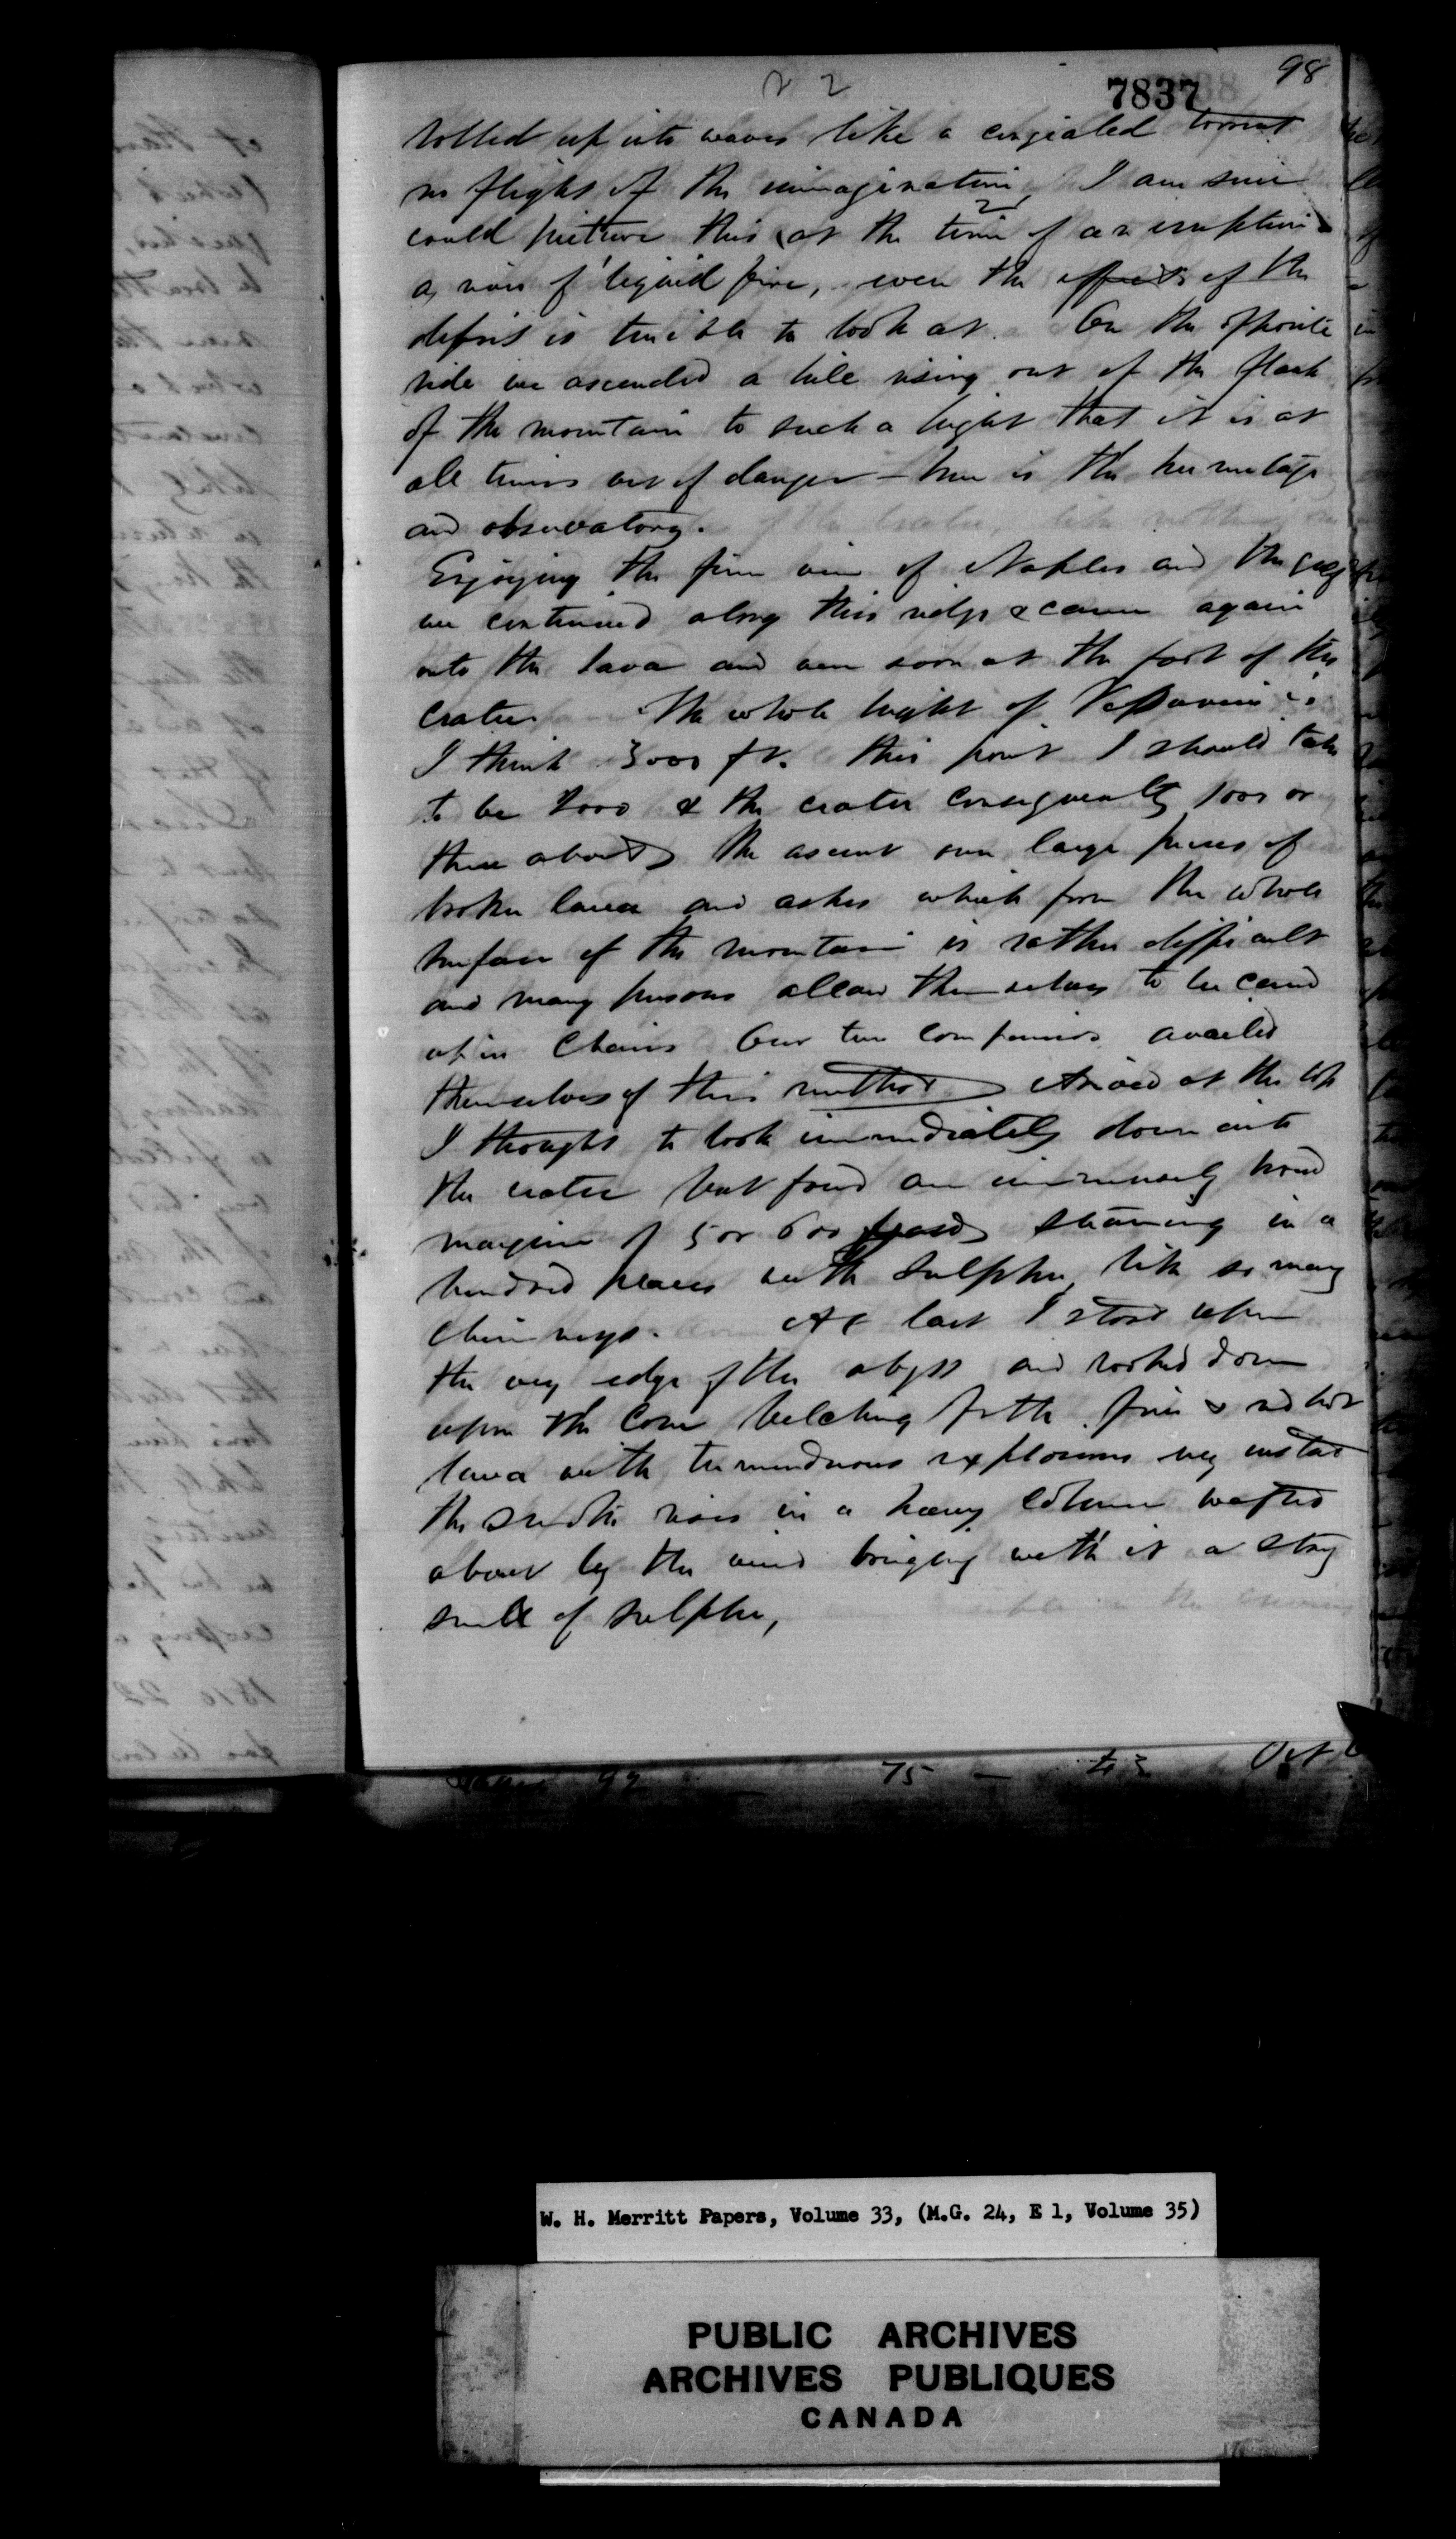 22
7837
98
rolled up into waves like a congealed torrent
no flight of the immagination, I am sure
could picture this at the time of an eruption
a river of liquid fire, even the effects of the
debris is terrible to look at. On the opposite
side we ascended a hill rising out of the flank
of the mountain to such a hight that it is at
all times out of danger - here is the hermitage
and observatory.
Enjoying the fine view of Naples and the Gulf
we continued along this ridge & came again
onto the lava and were soon at the foot of the
crater. The whole hight of Vesuvius is
I think 3000 ft. this point I should take
to be 2000 & the crater consequently 1000 or
there abouts The ascent over large pieces of
broken lava and ashes which form the whole
surface of the mountain is rather difficult
and many persons allow themselves to be carried
up in Chairs Our two companions availed
themselves of this method Arrived at the top
I thought to look immediately down into
the crater but found an immensely broad
margin of 5 or 600 yards steaming in a
hundred places with sulpher, like so many
Chimneys. At last I stood upon
the very edge of the abyss and looked down
upon the Cone belching forth fire & red hot
lava with tremenduous explosions every instant
the smoke rises in a heavy column wafted
about by the wind bringing with it a strong
smell of sulpher,
75 - 43 Oct
W. H. Merritt Papers, Volume 33, (M.G. 24, E 1, Volume 35)
PUBLIC ARCHIVES
ARCHIVES PUBLIQUES
CANADA